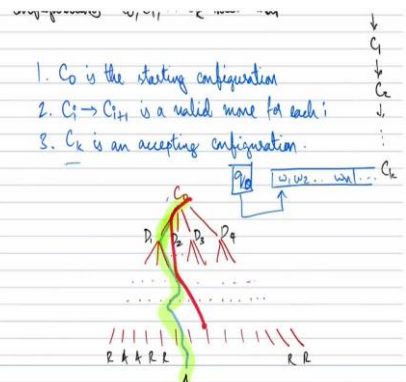 1. C₀ is the starting configuration
2. Cᵢ → Cᵢ₊₁ is a valid move for each i
3. Cₖ is an accepting configuration.
C₁
C₂
⋮
Cₖ
q₀ w₁w₂... wₙ ...
C₀
D₁ D₂ D₃ D₄
R A A R R R R
A